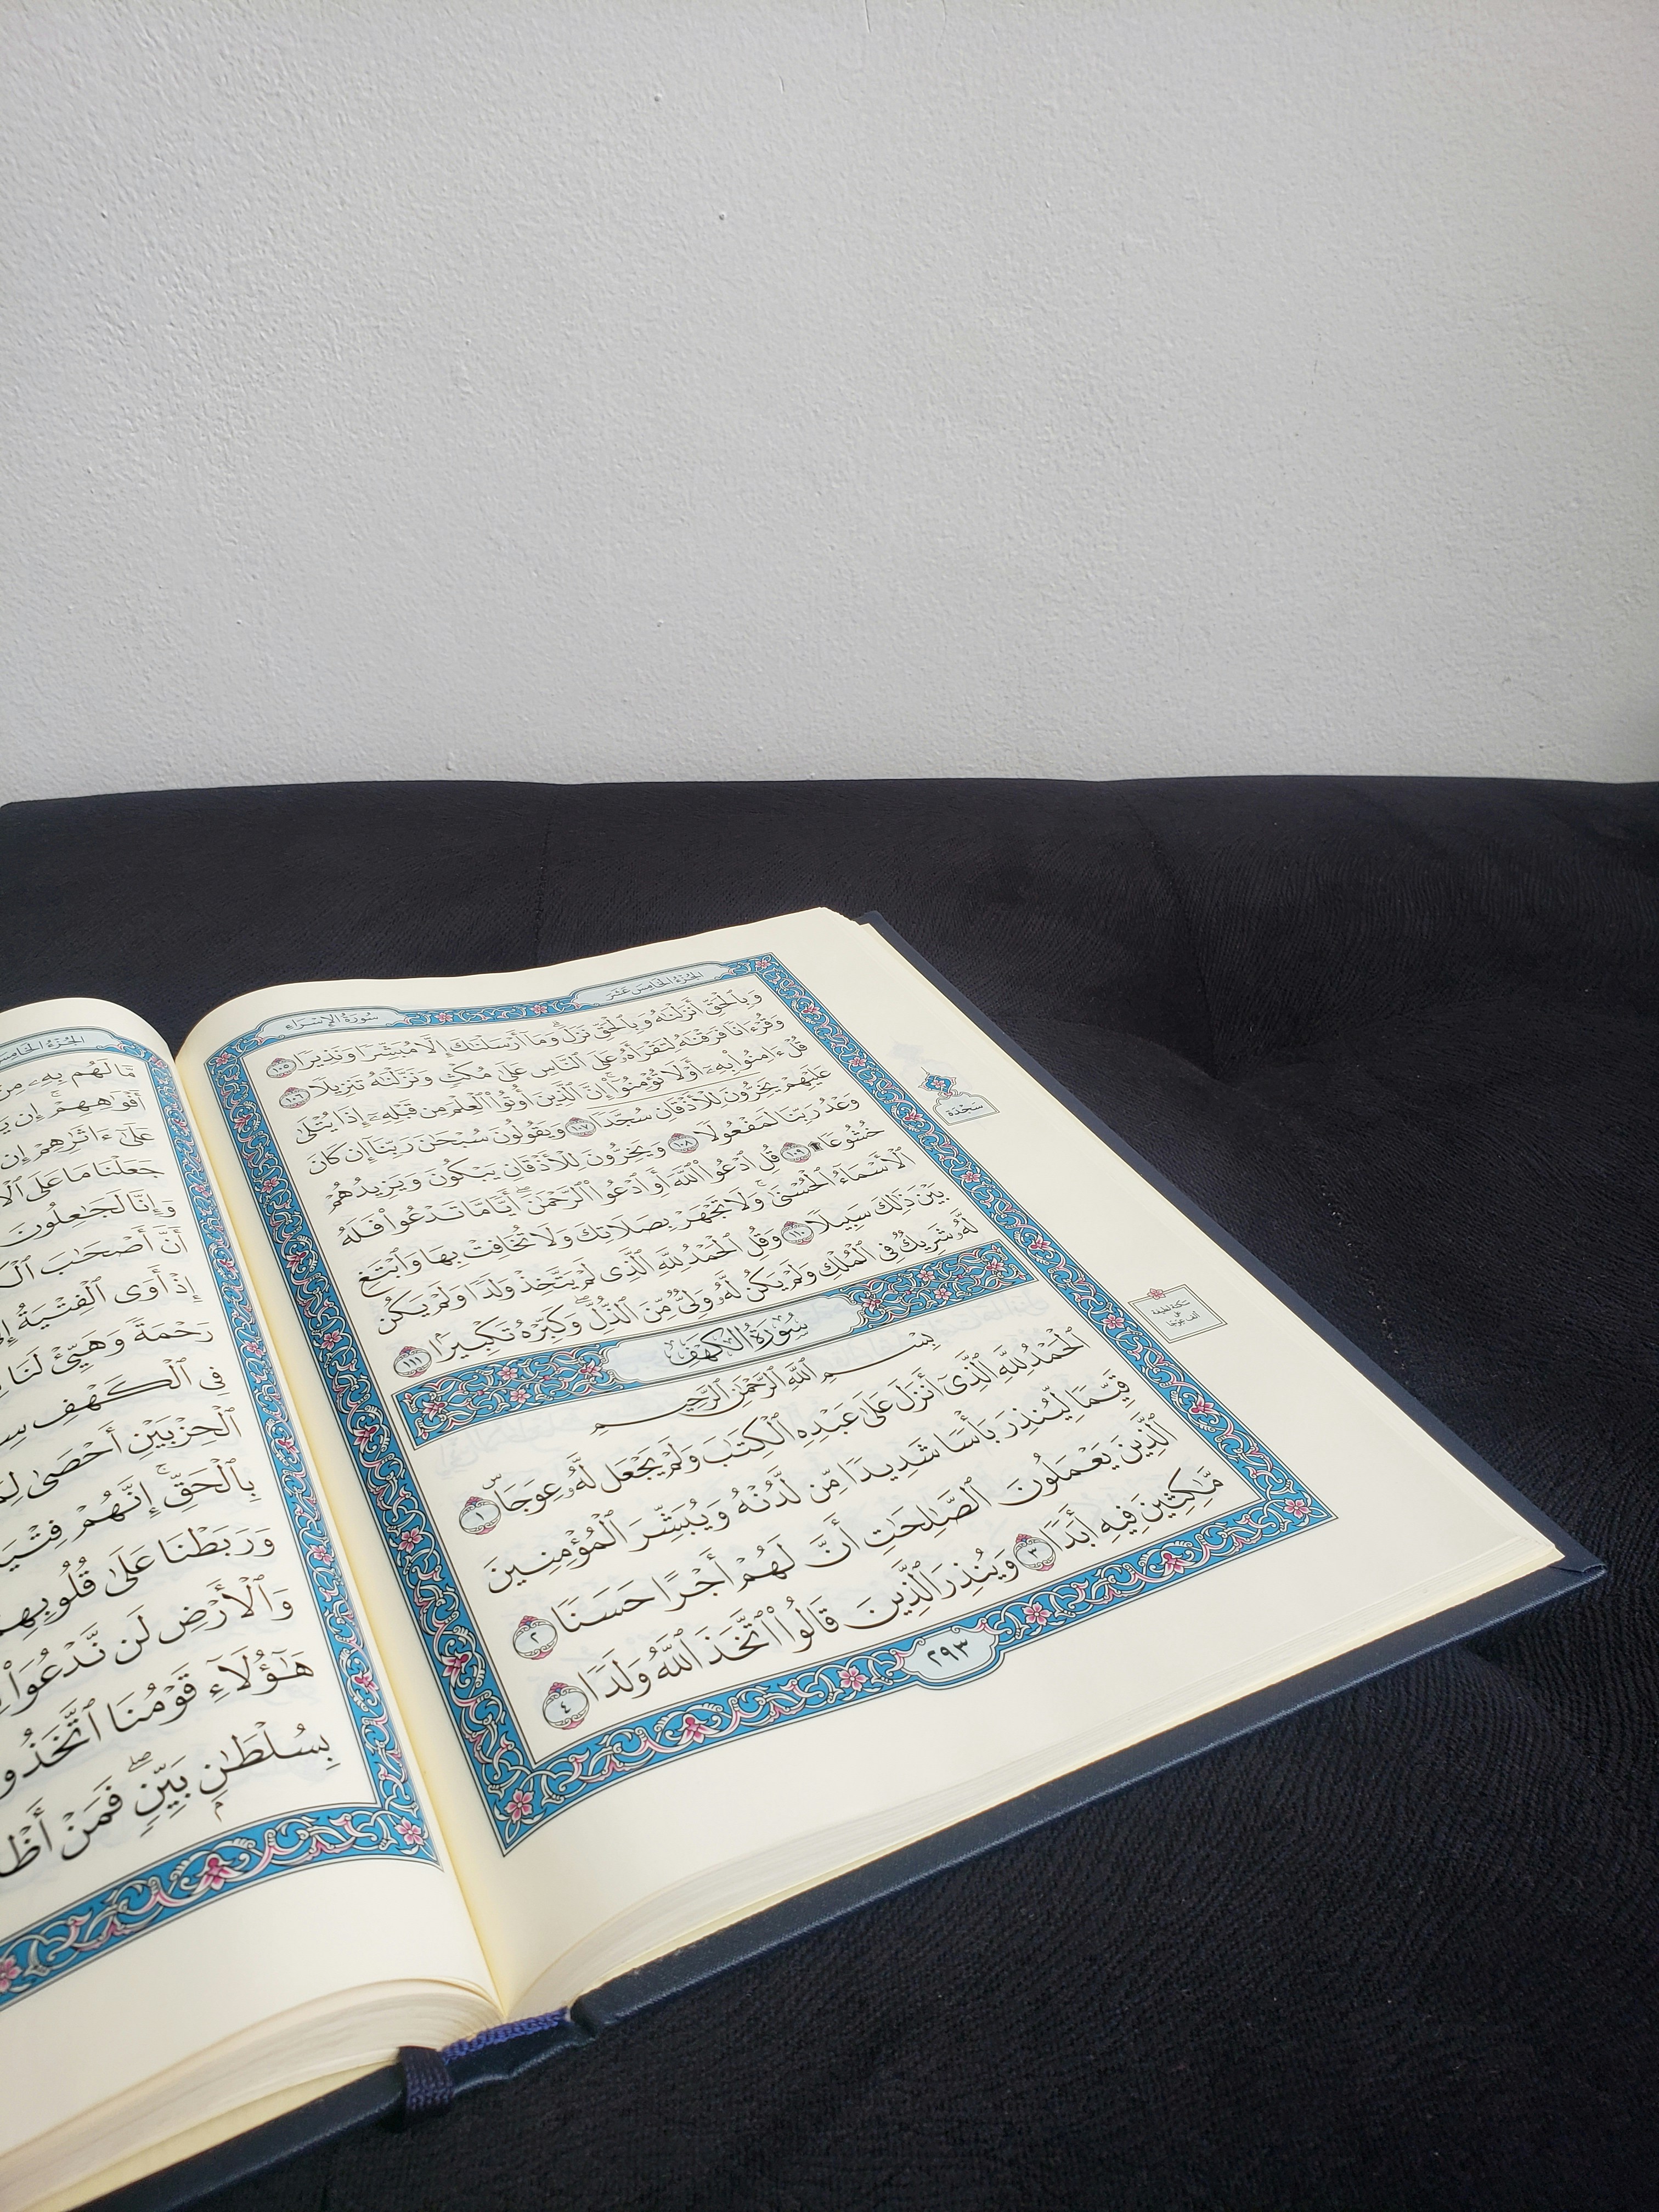 سُورَةُ الإِسْرَاءِ
الجُزْءُ الخَامِسَ عَشَرَ
وَبِٱلْحَقِّ أَنزَلْنَٰهُ وَبِٱلْحَقِّ نَزَلَۗ وَمَآ أَرْسَلْنَٰكَ إِلَّا مُبَشِّرًا وَنَذِيرًا ١٠٥
وَقُرْءَانًا فَرَقْنَٰهُ لِتَقْرَأَهُۥ عَلَى ٱلنَّاسِ عَلَىٰ مُكْثٍ وَنَزَّلْنَٰهُ تَنزِيلًا ١٠٦
قُلْ ءَامِنُوا۟ بِهِۦٓ أَوْ لَا تُؤْمِنُوٓا۟ۚ إِنَّ ٱلَّذِينَ أُوتُوا۟ ٱلْعِلْمَ مِن قَبْلِهِۦٓ إِذَا يُتْلَىٰ
عَلَيْهِمْ يَخِرُّونَ لِلْأَذْقَانِ سُجَّدًا ١٠٧ وَيَقُولُونَ سُبْحَٰنَ رَبِّنَآ إِن كَانَ
وَعْدُ رَبِّنَا لَمَفْعُولًا ١٠٨ وَيَخِرُّونَ لِلْأَذْقَانِ يَبْكُونَ وَيَزِيدُهُمْ
خُشُوعًا ۩ ١٠٩ قُلِ ٱدْعُوا۟ ٱللَّهَ أَوِ ٱدْعُوا۟ ٱلرَّحْمَٰنَۖ أَيًّا مَّا تَدْعُوا۟ فَلَهُ
ٱلْأَسْمَآءُ ٱلْحُسْنَىٰۚ وَلَا تَجْهَرْ بِصَلَاتِكَ وَلَا تُخَافِتْ بِهَا وَٱبْتَغِ
بَيْنَ ذَٰلِكَ سَبِيلًا ١١٠ وَقُلِ ٱلْحَمْدُ لِلَّهِ ٱلَّذِى لَمْ يَتَّخِذْ وَلَدًا وَلَمْ يَكُن
لَّهُۥ شَرِيكٌ فِى ٱلْمُلْكِ وَلَمْ يَكُن لَّهُۥ وَلِىٌّ مِّنَ ٱلذُّلِّۖ وَكَبِّرْهُ تَكْبِيرًۢا ١١١
سُورَةُ الكَهْفِ
بِسْمِ ٱللَّهِ ٱلرَّحْمَٰنِ ٱلرَّحِيمِ
ٱلْحَمْدُ لِلَّهِ ٱلَّذِىٓ أَنزَلَ عَلَىٰ عَبْدِهِ ٱلْكِتَٰبَ وَلَمْ يَجْعَل لَّهُۥ عِوَجَاۜ ١
قَيِّمًا لِّيُنذِرَ بَأْسًا شَدِيدًا مِّن لَّدُنْهُ وَيُبَشِّرَ ٱلْمُؤْمِنِينَ
ٱلَّذِينَ يَعْمَلُونَ ٱلصَّٰلِحَٰتِ أَنَّ لَهُمْ أَجْرًا حَسَنًا ٢
مَّٰكِثِينَ فِيهِ أَبَدًا ٣ وَيُنذِرَ ٱلَّذِينَ قَالُوا۟ ٱتَّخَذَ ٱللَّهُ وَلَدًا ٤
٢٩٣
سَجْدَة
سكتة لطيفة
على
ألف عوجا
الجُزْءُ
مَّا لَهُم بِهِۦ مِنْ
أَفْوَٰهِهِمْۚ إِن
عَلَىٰٓ ءَاثَٰرِهِمْ إِن
جَعَلْنَا مَا عَلَى
وَإِنَّا لَجَٰعِلُونَ
أَنَّ أَصْحَٰبَ
إِذْ أَوَى ٱلْفِتْيَةُ
رَحْمَةً وَهَيِّئْ لَنَا
فِى ٱلْكَهْفِ
ٱلْحِزْبَيْنِ أَحْصَىٰ
بِٱلْحَقِّۚ إِنَّهُمْ
وَرَبَطْنَا عَلَىٰ
وَٱلْأَرْضِ لَن نَّدْعُوَا۟
هَٰٓؤُلَآءِ قَوْمُنَا
بِسُلْطَٰنٍۭ بَيِّنٍۖ فَمَنْ